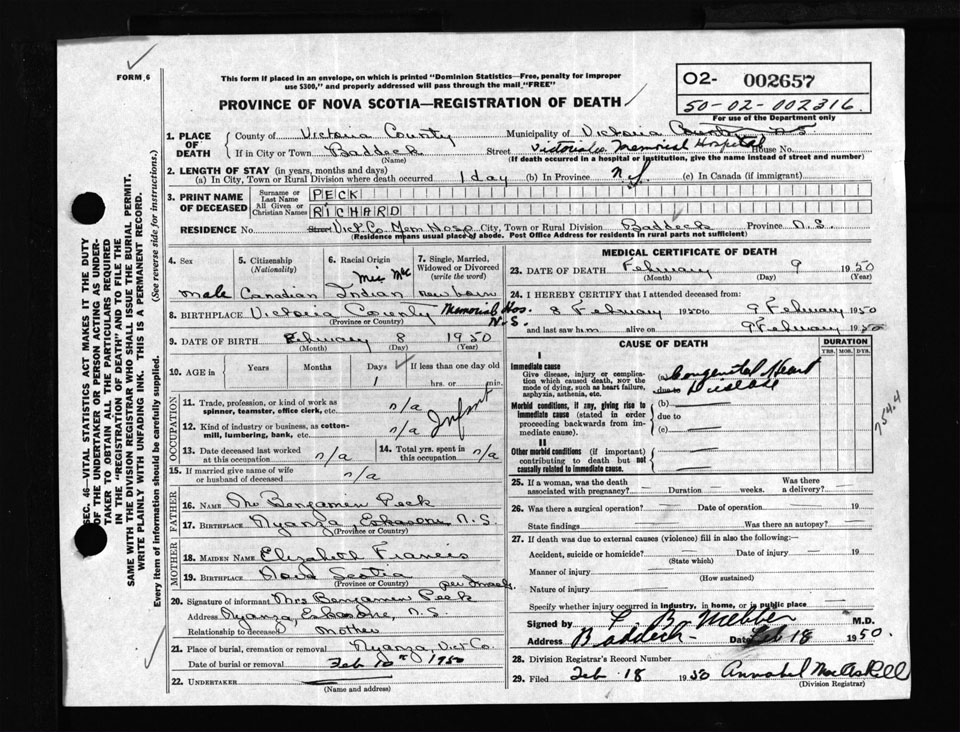 FORM 6
This form if placed in an envelope, on which is printed "Dominion Statistics—Free, penalty for improper
use $300," and properly addressed will pass through the mail "FREE"
PROVINCE OF NOVA SCOTIA—REGISTRATION OF DEATH
02- 002657
50-02-002316
For use of the Department only
1. PLACE OF DEATH County of Victoria County Municipality of Victoria County N S
If in City or Town Baddeck (Name) Street Victoria Co Memorial Hospital House No.
(If death occurred in a hospital or institution, give the name instead of street and number)
2. LENGTH OF STAY (in years, months and days)
(a) In City, Town or Rural Division where death occurred 1 day (b) In Province N.S (c) In Canada (if immigrant)
3. PRINT NAME OF DECEASED Surname or Last Name PECK
All Given or Christian Names RICHARD
RESIDENCE No. Street Vict. Co. Mem. Hosp. City, Town or Rural Division Baddeck Province N.S.
(Residence means usual place of abode. Post Office Address for residents in rural parts not sufficient)
4. Sex male
5. Citizenship (Nationality) Canadian
6. Racial Origin Mic Mc Indian
7. Single, Married, Widowed or Divorced (write the word) newborn
8. BIRTHPLACE Victoria County Memorial Hos. N.S.
(Province or Country)
9. DATE OF BIRTH February 8 1950
(Month) (Day) (Year)
10. AGE in Years Months Days If less than one day old
1 hrs. or min.
OCCUPATION
11. Trade, profession, or kind of work as spinner, teamster, office clerk, etc. n/a
12. Kind of industry or business, as cotton-mill, lumbering, bank, etc. n/a Infant
13. Date deceased last worked at this occupation n/a
14. Total yrs. spent in this occupation n/a
15. If married give name of wife or husband of deceased n/a
FATHER
16. Name Mr Benjamen Peck
17. Birthplace Nyanza, Eskasoni N.S.
(Province or Country)
MOTHER
18. MAIDEN NAME Elizabeth Francis
19. BIRTHPLACE Nova Scotia
(Province or Country)
20. Signature of informant Mrs Benjamen Peck
Address Nyanza, Eskasoni, N.S.
Relationship to deceased mother
21. Place of burial, cremation or removal Nyanza, Vict Co.
Date of burial or removal Feb 10th 1950
22. UNDERTAKER
(Name and address)
MEDICAL CERTIFICATE OF DEATH
23. DATE OF DEATH February 9 1950
(Month) (Day)
24. I HEREBY CERTIFY that I attended deceased from:
8 February 1950 to 9 February 1950
and last saw him alive on 9 February 1950
CAUSE OF DEATH
DURATION
YRS. MOS. DYS.
I
Immediate cause
Give disease, injury or complication which caused death, not the mode of dying, such as heart failure, asphyxia, asthenia, etc.
(a) Congenital Heart
due to Disease
Morbid conditions, if any, giving rise to immediate cause (stated in order proceeding backwards from immediate cause).
(b)
due to
(c)
754.4
II
Other morbid conditions (if important) contributing to death but not causally related to immediate cause.
25. If a woman, was the death associated with pregnancy? — Duration — weeks. Was there a delivery? —
26. Was there a surgical operation? — Date of operation — 19
State findings Was there an autopsy? —
27. If death was due to external causes (violence) fill in also the following:—
Accident, suicide or homicide? — Date of injury — 19
(State which)
Manner of injury
(How sustained)
Nature of injury
Specify whether injury occurred in industry, in home, or in public place
Signed by B. Webber M.D.
Address Baddeck Date Feb 18 1950.
28. Division Registrar's Record Number
29. Filed Feb 18 1950 Annabel MacAskill
(Division Registrar)
SEC. 46—VITAL STATISTICS ACT MAKES IT THE DUTY
OF THE UNDERTAKER OR PERSON ACTING AS UNDER-
TAKER TO OBTAIN ALL THE PARTICULARS REQUIRED
IN THE "REGISTRATION OF DEATH" AND TO FILE THE
SAME WITH THE DIVISION REGISTRAR WHO SHALL ISSUE THE BURIAL PERMIT.
WRITE PLAINLY WITH UNFADING INK. THIS IS A PERMANENT RECORD.
Every item of information should be carefully supplied. (See reverse side for instructions.)